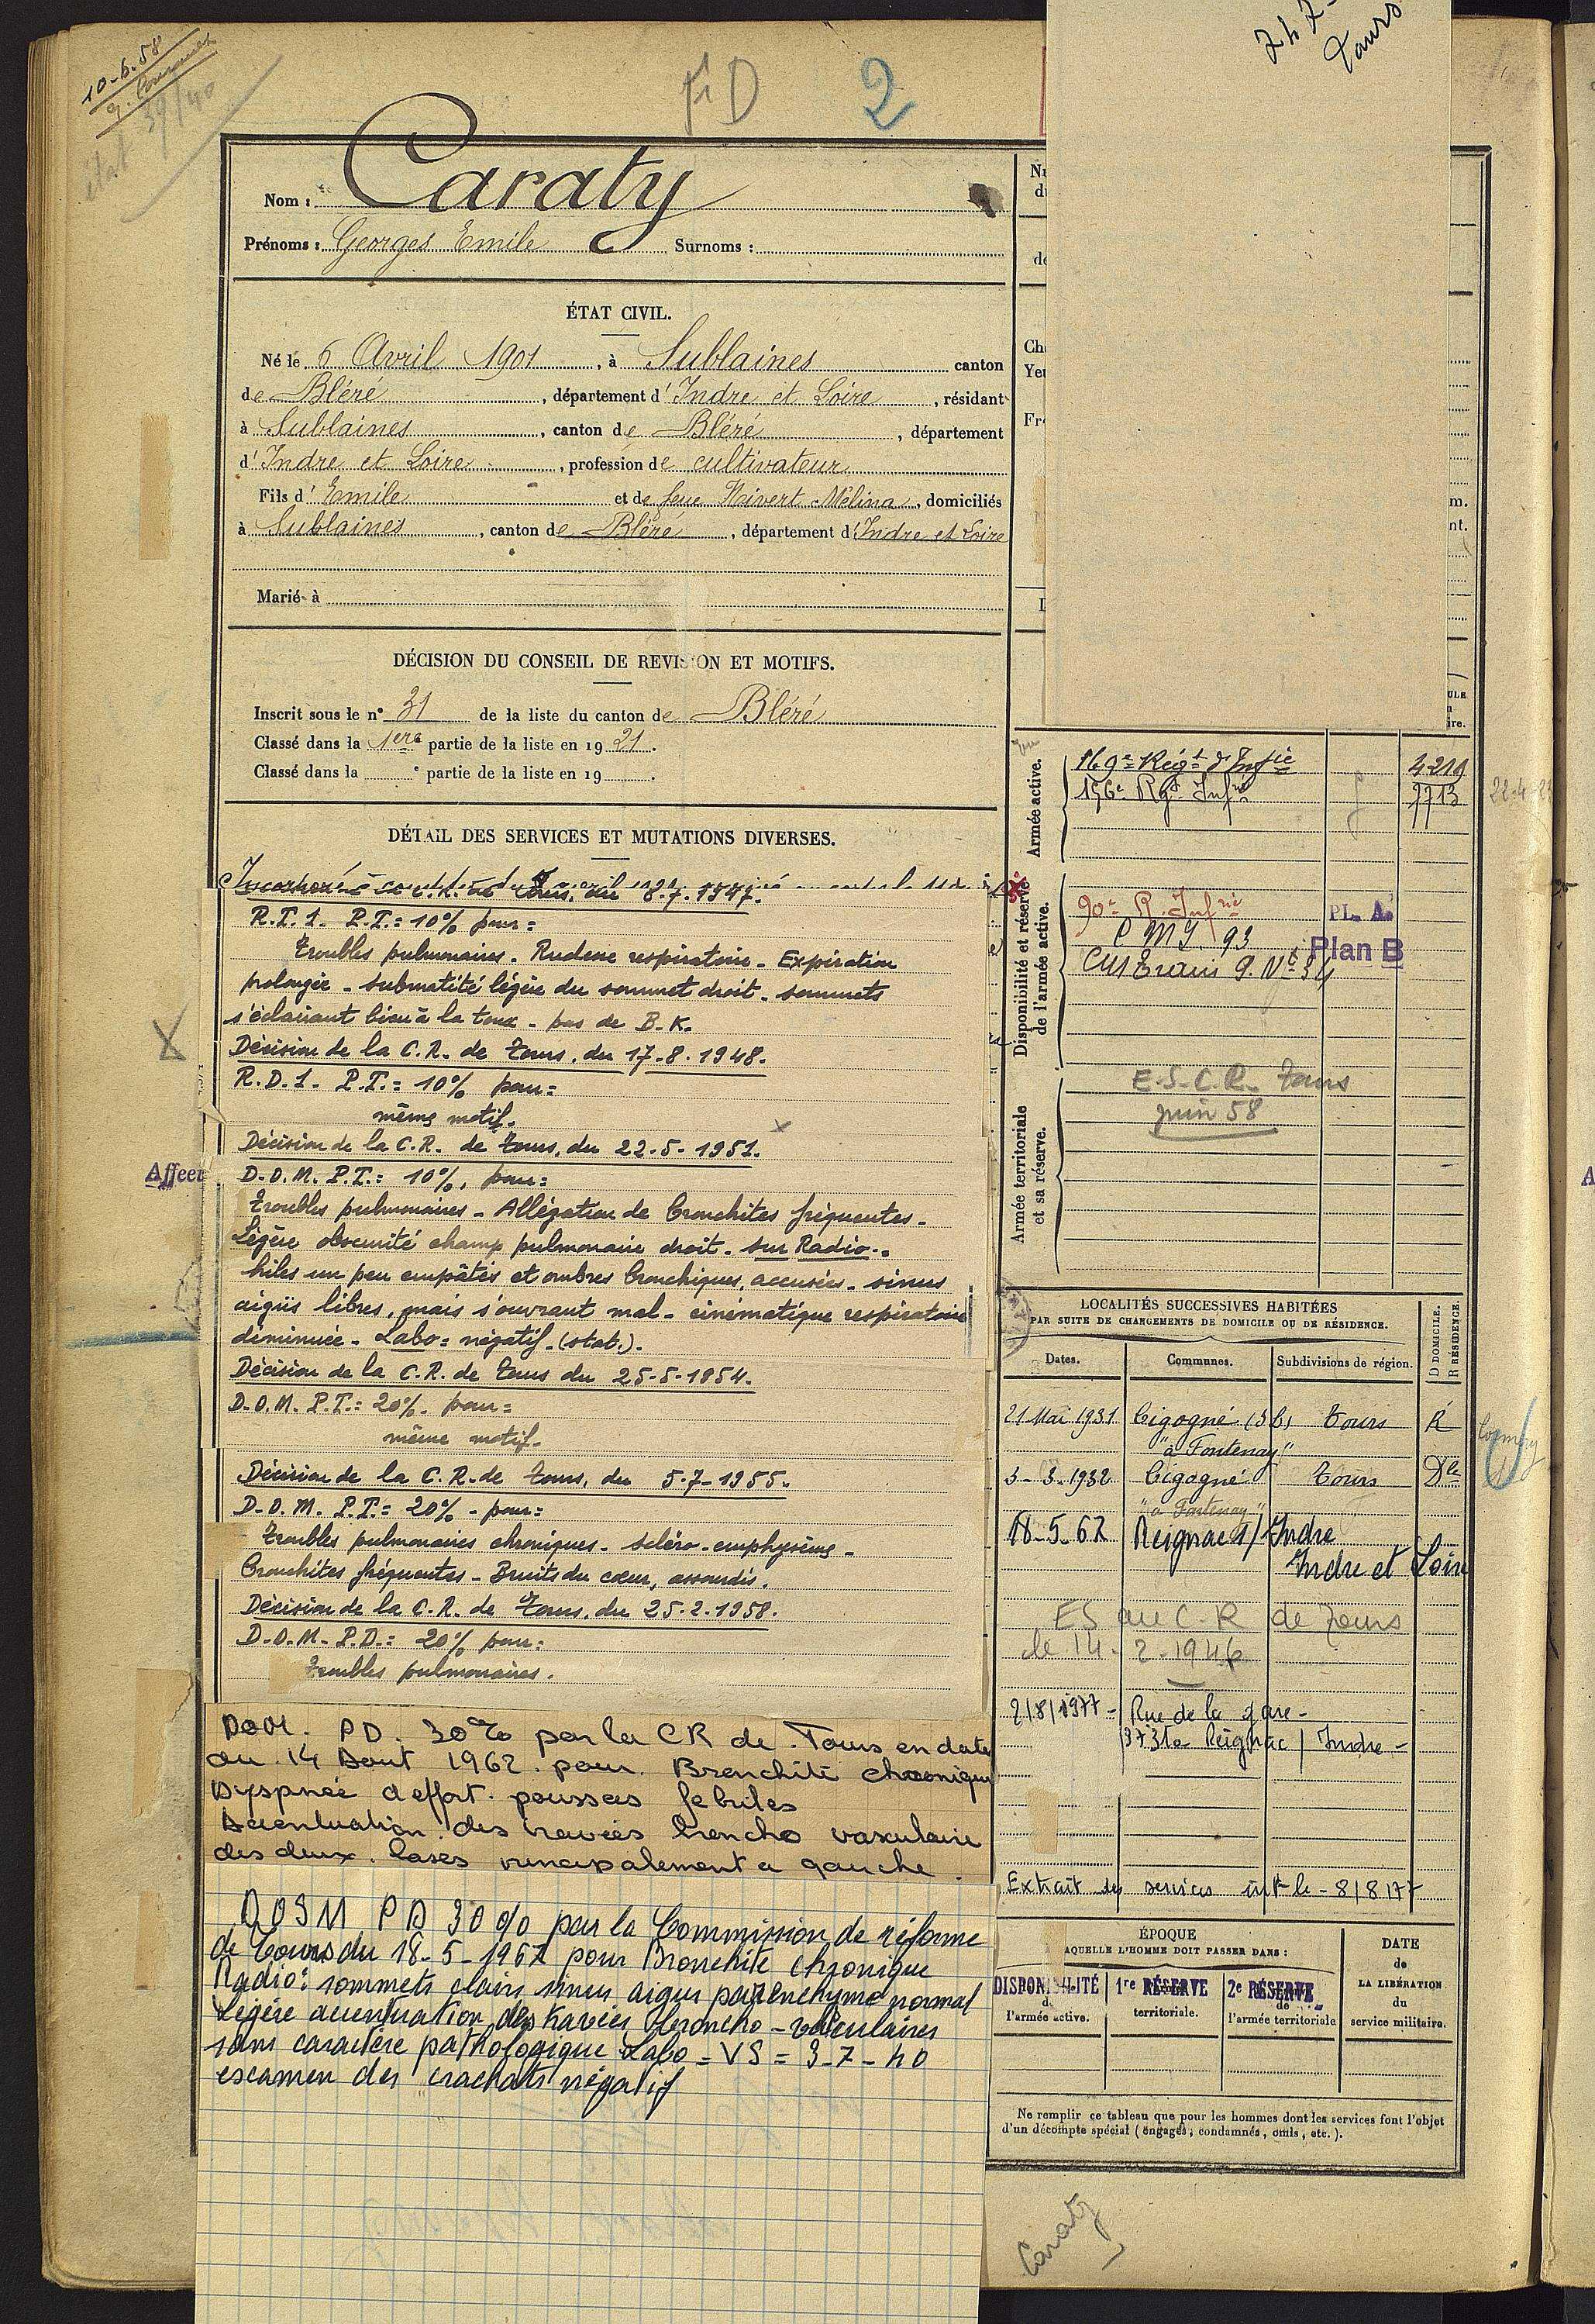 10-6-58
état 39/40
FD
2
Nom : Caraty
Prénoms : Georges Emile Surnoms :
ÉTAT CIVIL.
Né le 6 Avril 1901, à Sublaines canton
de Bléré, département d'Indre et Loire, résidant
à Sublaines, canton de Bléré, département
d'Indre et Loire, profession de cultivateur
Fils d'Emile et de feue Hivert Mélina, domiciliés
à Sublaines, canton de Bléré, département d'Indre et Loire
Marié à
DÉCISION DU CONSEIL DE REVISION ET MOTIFS.
Inscrit sous le n° 31 de la liste du canton de Bléré
Classé dans la 1ère partie de la liste en 1921.
Classé dans la e partie de la liste en 19 .
DÉTAIL DES SERVICES ET MUTATIONS DIVERSES.
8.7.1947.
R.T.1. P.T.= 10% pour=
Troubles pulmonaires. Rudesse respiratoire. Expiration
prolongée - submatité légère du sommet droit. sommets
s'éclairant bien à la toux - pas de B.K.
Décision de la C.R. de Tours, du 17-8-1948.
R.D.1. P.T.= 10% pour=
même motif.
Décision de la C.R. de Tours, du 22-5-1951.
D.O.M. P.T.: 10%, pour=
Troubles pulmonaires - Allégation de bronchites fréquentes-
Légère obscurité champ pulmonaire droit. sur Radio.-
hiles un peu empâtés et ombres bronchiques accusées. sinus
aigüs libres, mais s'ouvrant mal - cinématique respiratoire
diminuée - Labo= négatif. (stat.).
Décision de la C.R. de Tours du 25-5-1954.
D.O.M. P.T.: 20%. pour=
même motif-
Décision de la C.R. de Tours, du 5-7-1955.
D.O.M. P.T.= 20% - pour=
Troubles pulmonaires chroniques. scléro-emphysème-
Bronchites fréquentes - Bruits du cœur, assourdis.
Décision de la C.R. de Tours, du 25.2.1958.
D.O.M. P.D.: 20% pour:
Troubles pulmonaires.
PD. 30% par la CR de Tours en date
du 14 Aout 1962 pour Bronchite chronique
Dyspnée d'effort. poussées febriles
Accentuation des travées broncho vasculaire
des deux bases principalement a gauche.
PD 30% par la Commission de réforme
de Tours du 18-5-1967 pour Bronchite chronique
Radio: sommets clairs sinus aigus parenchyme normal
Légère accentuation des travées broncho-vasculaires
sans caractère pathologique Labo = VS = 3-7-40
examen des crachats négatif
Affect
Armée active.
169e Régt d'Infie 4219
156e Rgt Infie 7713
Disponibilité et réserve
de l'armée active.
90e R. Infrie
PL. A.
93
Plan B
Armée territoriale
et sa réserve.
E.S. C.R. Tours
juin 58
LOCALITÉS SUCCESSIVES HABITÉES
PAR SUITE DE CHANGEMENTS DE DOMICILE OU DE RÉSIDENCE.
Dates. Communes. Subdivisions de région. D DOMICILE. R RÉSIDENCE.
21 Mai 1931 Cigogné Tours R
"à Fontenay"
3-3-1932 Cigogné Tours Dle
"à Fontenay"
18-5-67 Reignac s/Indre
Indre et Loire
ES au C-R de Tours
le 14-2-1946
2/8/1977 - Rue de la gare -
37310 Reignac / Indre -
Extrait des services le - 8/8/77
ÉPOQUE
AQUELLE L'HOMME DOIT PASSER DANS :
DATE
de
LA LIBÉRATION
du
service militaire.
DISPONIBILITÉ
l'armée active.
1re RÉSERVE
territoriale.
2e RÉSERVE
de
l'armée territoriale
Ne remplir ce tableau que pour les hommes dont les services font l'objet
d'un décompte spécial (engagés, condamnés, omis, etc.).
Caraty